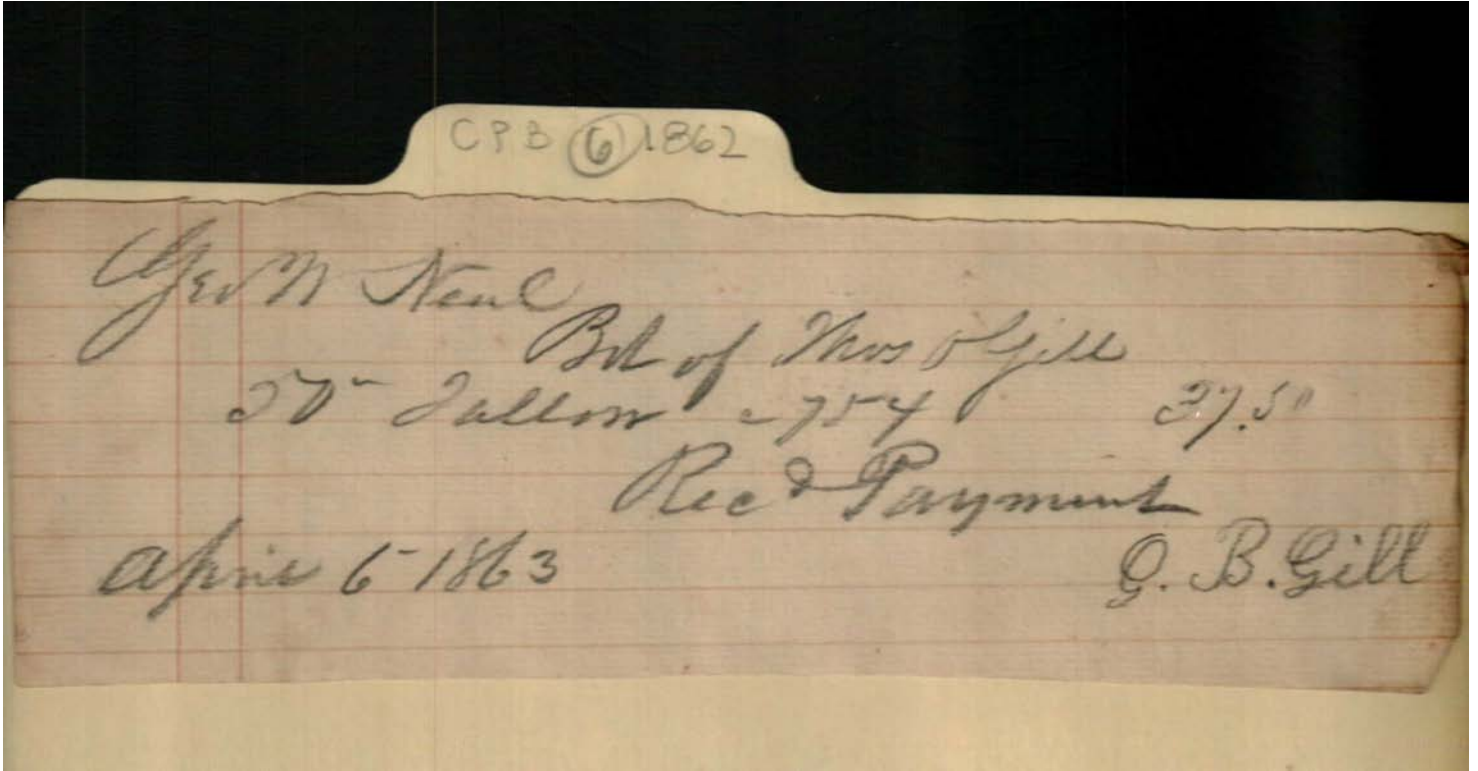 CPB 6 1862
Geo W Neal
Bot of Thos O Gill
50 Tallow 75 37.50
Rec d Payment
April 6 1863
G. B. Gill